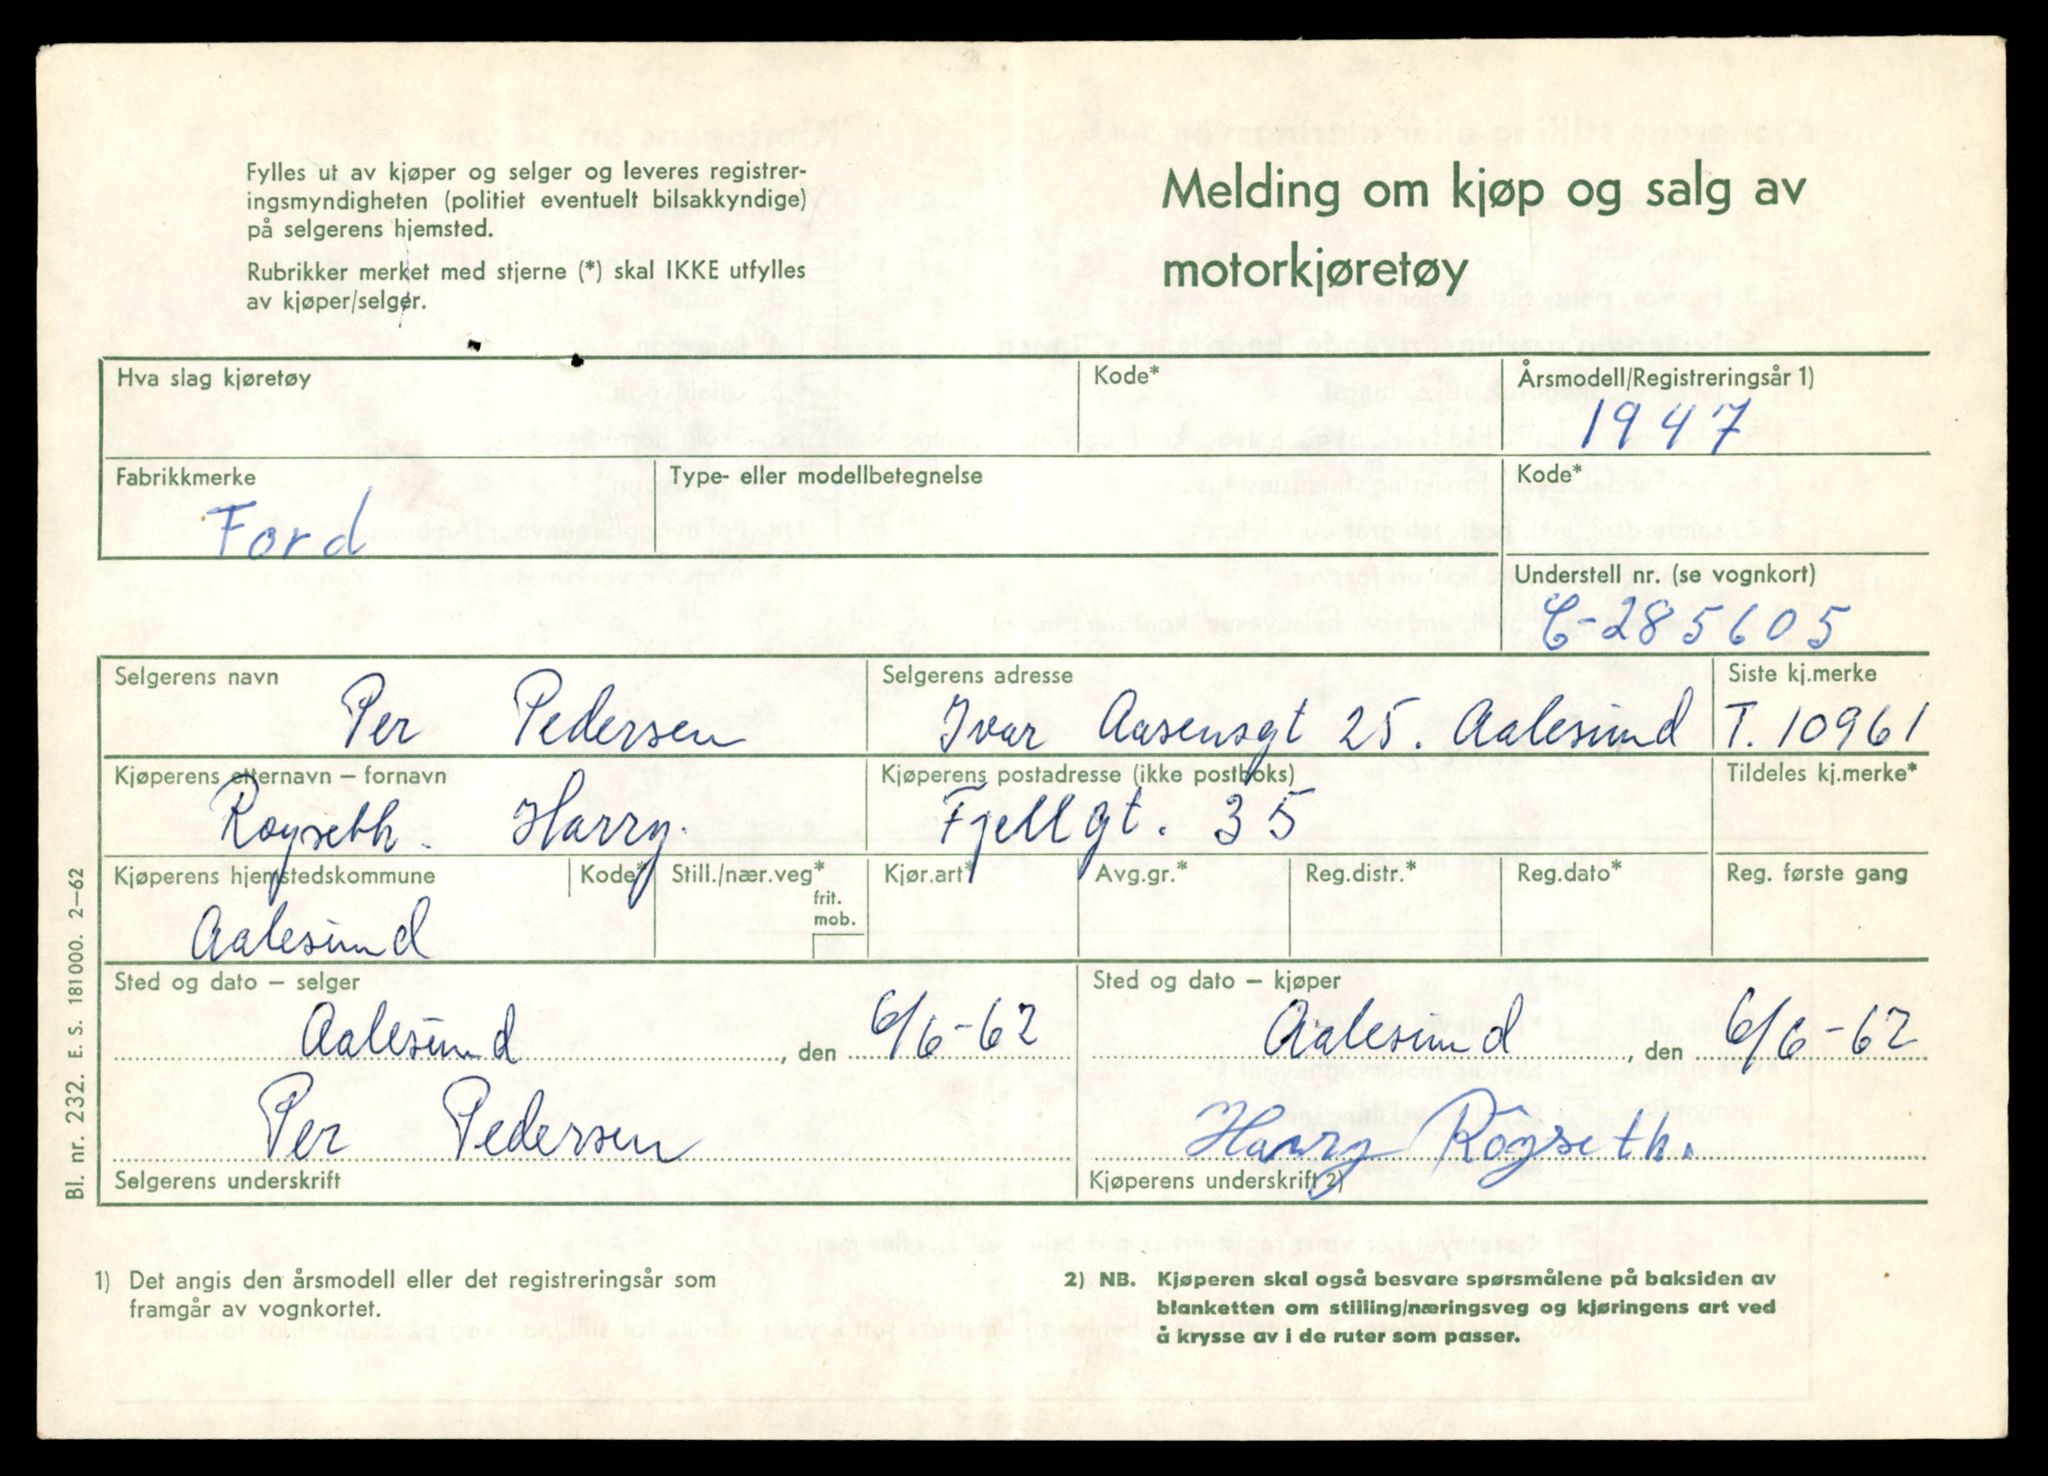 Fylles ut av kjøper og selger og leveres registrer-
ingsmyndigheten (politiet eventuelt bilsakkyndige)
på selgerens hjemsted.
Rubrikker merket med stjerne (*) skal IKKE utfylles
av kjøper/selger.
Melding om kjøp og salg av
motorkjøretøy
Hva slag kjøretøy
Kode*
Årsmodell/Registreringsår 1)
1947
Fabrikkmerke
Ford
Type- eller modellbetegnelse
Kode*
Understell nr. (se vognkort)
C-285605
Selgerens navn
Per Pedersen
Selgerens adresse
Ivar Aasensgt 25. Aalesund
Siste kj.merke
T. 10961
Kjøperens etternavn – fornavn
Røyseth. Harry.
Kjøperens postadresse (ikke postboks)
Fjellgt. 35
Tildeles kj.merke*
Kjøperens hjemstedskommune
Aalesund
Kode*
Still./nær.veg*
frit.
mob.
Kjør.art*
Avg.gr.*
Reg.distr.*
Reg.dato*
Reg. første gang
Sted og dato – selger
Aalesund, den 6/6-62
Per Pedersen
Selgerens underskrift
Sted og dato – kjøper
Aalesund, den 6/6-62
Harry Röyseth.
Kjøperens underskrift 2)
1) Det angis den årsmodell eller det registreringsår som
framgår av vognkortet.
2) NB. Kjøperen skal også besvare spørsmålene på baksiden av
blanketten om stilling/næringsveg og kjøringens art ved
å krysse av i de ruter som passer.
Bl. nr. 232. E. S. 181000. 2–62